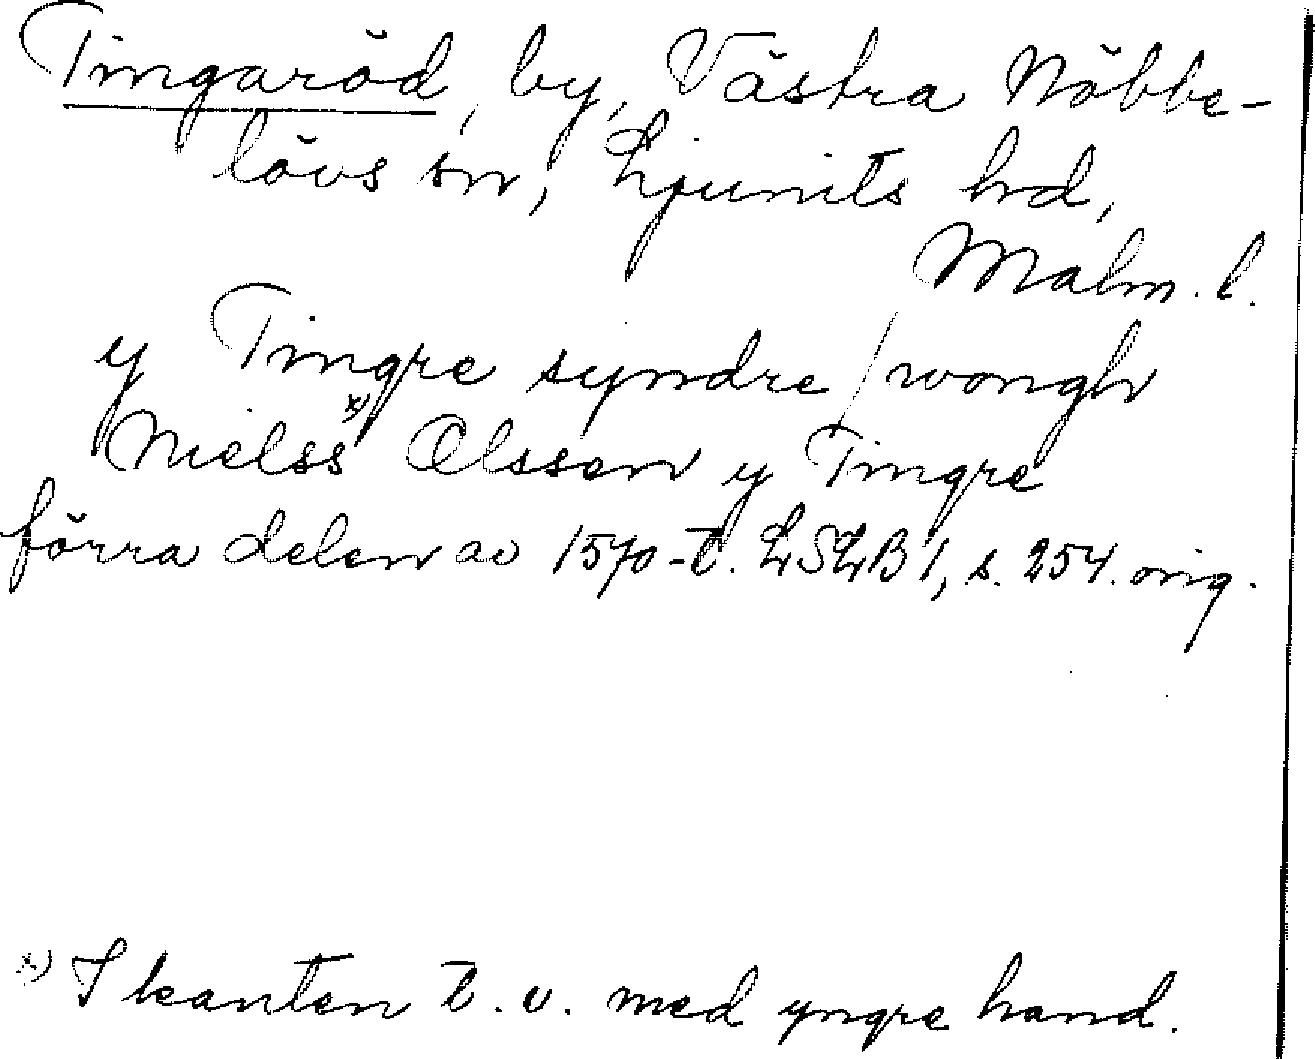 Tingaröd, by, Västra Nöbbe-
lövs sn, Ljunits hd,
Malm. l.
y Tingre syndre / wongh
Nielss x) Olssen y Tingre
förra delen av 1570-t. LSLB 1, s. 254. orig.
x) I kanten t.v. med yngre hand.